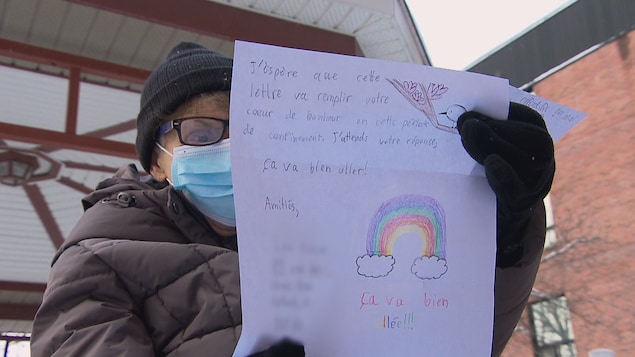 J'espère que cette
lettre va remplir votre
coeur de bonheur en cette période
de confinement. J'attends votre réponse,
Ça va bien aller!
Amitiés,
Ça va bien
allée!!!